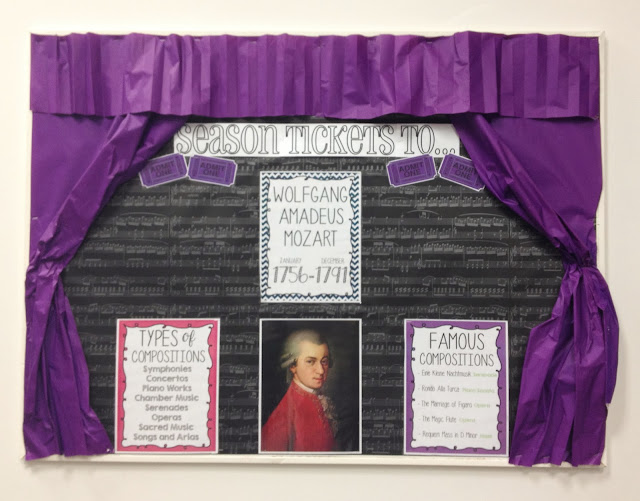 SEASON TICKETS TO...
ADMIT ONE
ADMIT ONE
ADMIT ONE
ADMIT ONE
WOLFGANG
AMADEUS
MOZART
JANUARY DECEMBER
1756-1791
TYPES of
COMPOSITIONS
Symphonies
Concertos
Piano Works
Chamber Music
Serenades
Operas
Sacred Music
Songs and Arias
FAMOUS
COMPOSITIONS
- Eine Kleine Nachtmusik
- Rondo Alla Turca
- The Marriage of Figaro
- The Magic Flute
- Requiem Mass in D Minor